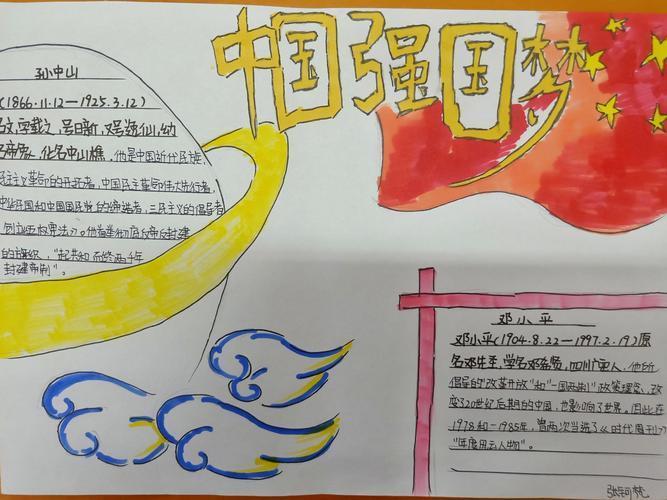 中国强国梦
孙中山
(1866.11.12—1925.3.12)
名文,字载之,号日新,又号逸仙,幼
名帝象,化名中山樵,他是中国近代民族
民主主义革命的开拓者,中国民主革命伟大先行者,
中华民国和中国国民党的缔造者,三民主义的倡导者
创立五权宪法》。他首举彻底反帝反封建
的旗帜,“起共和而终两千年
封建帝制”。
邓小平
邓小平(1904.8.22—1997.2.19)原
名邓先圣,学名邓希贤,四川广安人,他所
倡导的“改革开放”和“一国两制”政策理念,改
变320世纪后期的中国,也影响了世界。因此在
1978和1985年,曾两次当选了《时代周刊》
“年度风云人物”。